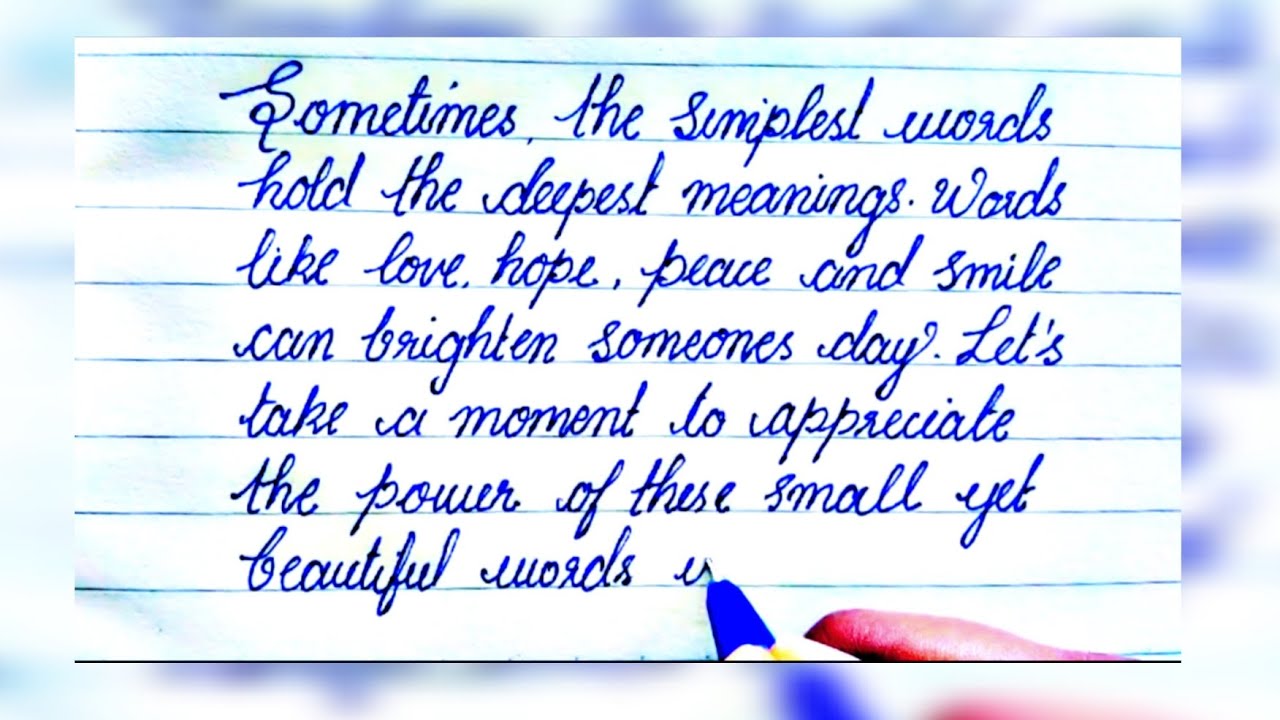 Sometimes, the simplest words
hold the deepest meanings. Words
like love, hope, peace and smile
can brighten someones day. Let's
take a moment to appreciate
the power of these small yet
beautiful words